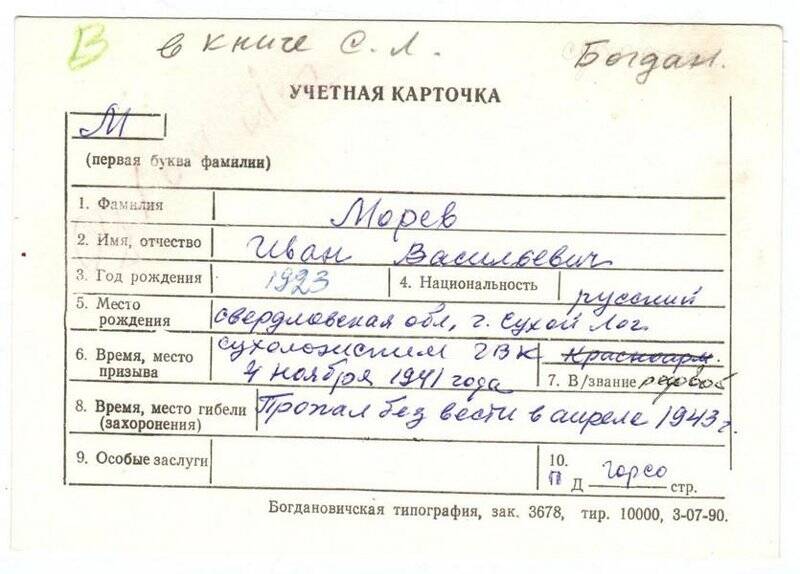 В в книге С.Л. Богдан.
УЧЕТНАЯ КАРТОЧКА
М
(первая буква фамилии)
1. Фамилия Морев
2. Имя, отчество Иван Васильевич
3. Год рождения 1923 4. Национальность русский
5. Место рождения свердловская обл, г. Сухой Лог
6. Время, место призыва Сухоложстим ГВК Красноарм.
4 ноября 1941 года 7. В/звание рядовой
8. Время, место гибели (захоронения) Пропал без вести в апреле 1943 г.
9. Особые заслуги 10.
П Д горсо стр.
Богдановичская типография, зак. 3678, тир. 10000, 3-07-90.